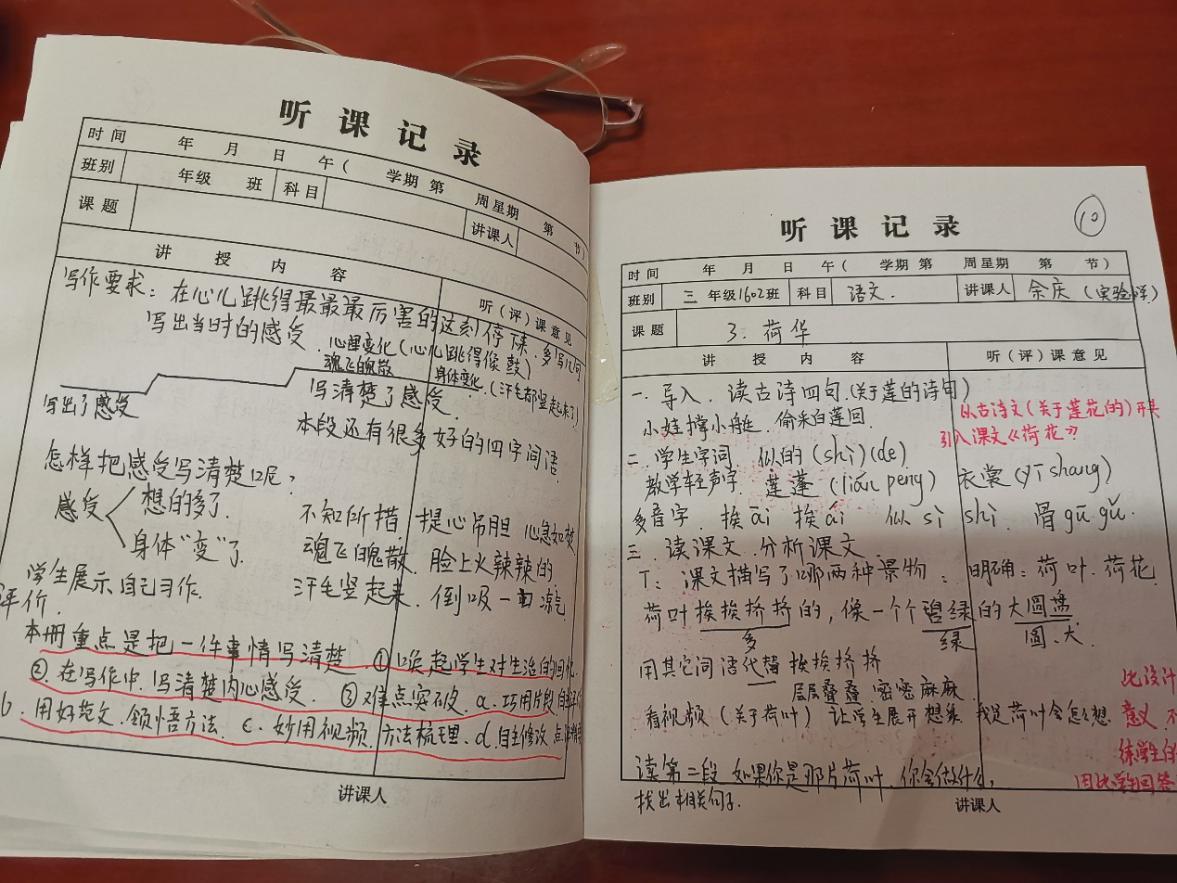 听课记录
时间 年 月 日 午( 学期 第 周星期 第 节)
班别 年级 班 科目 讲课人
课题
讲授内容 听(评)课意见
写作要求：在心儿跳得最最最厉害的这刻停下来，多写几句
写出当时的感受
心理变化(心儿跳得像鼓)
魂飞魄散 身体变化(汗毛都竖起来了)
写出了感受 写清楚了感受
本段还有很多好的四字词语
怎样把感受写清楚呢？
感受 想的多了 不知所措 提心吊胆 心急如焚
身体“变”了 魂飞魄散 脸上火辣辣的
学生展示自己习作 汗毛竖起来 倒吸一口凉气
评价
本册重点是把一件事情写清楚 ①唤起学生对生活的回忆
②在写作中，写清楚内心感受 ③难点突破 a.巧用片段
b.用好范文，领悟方法 c.妙用视频，方法梳理 d.自主修改
讲课人
10
听课记录
时间 年 月 日 午( 学期 第 周星期 第 节)
班别 三年级1602班 科目 语文. 讲课人 余庆(实验
课题 3.荷华
讲授内容 听(评)课意见
一.导入.读古诗四句(关于莲的诗句)
小娃撑小艇，偷采白莲回.
从古诗文(关于莲花的)开头
引入课文《荷花》
二.学生字词 似的(shì)(de)
教学轻声字 莲蓬(lián peng) 衣裳(yī shang)
多音字.挨āi 挨ái 似sì shì 骨gū gǔ.
三.读课文.分析课文
T：课文描写了哪两种景物：明确：荷叶.荷花
荷叶挨挨挤挤的，像一个个碧绿的大圆盘
多 绿 圆、大
用其它词语代替挨挨挤挤
层层叠叠 密密麻麻
看视频(关于荷叶)让学生展开想象 我是荷叶会怎么想
此设计
意义
练学生的
因此学生回答
读第二段 如果你是那片荷叶，你会做什么，
找出相关句子.
讲课人